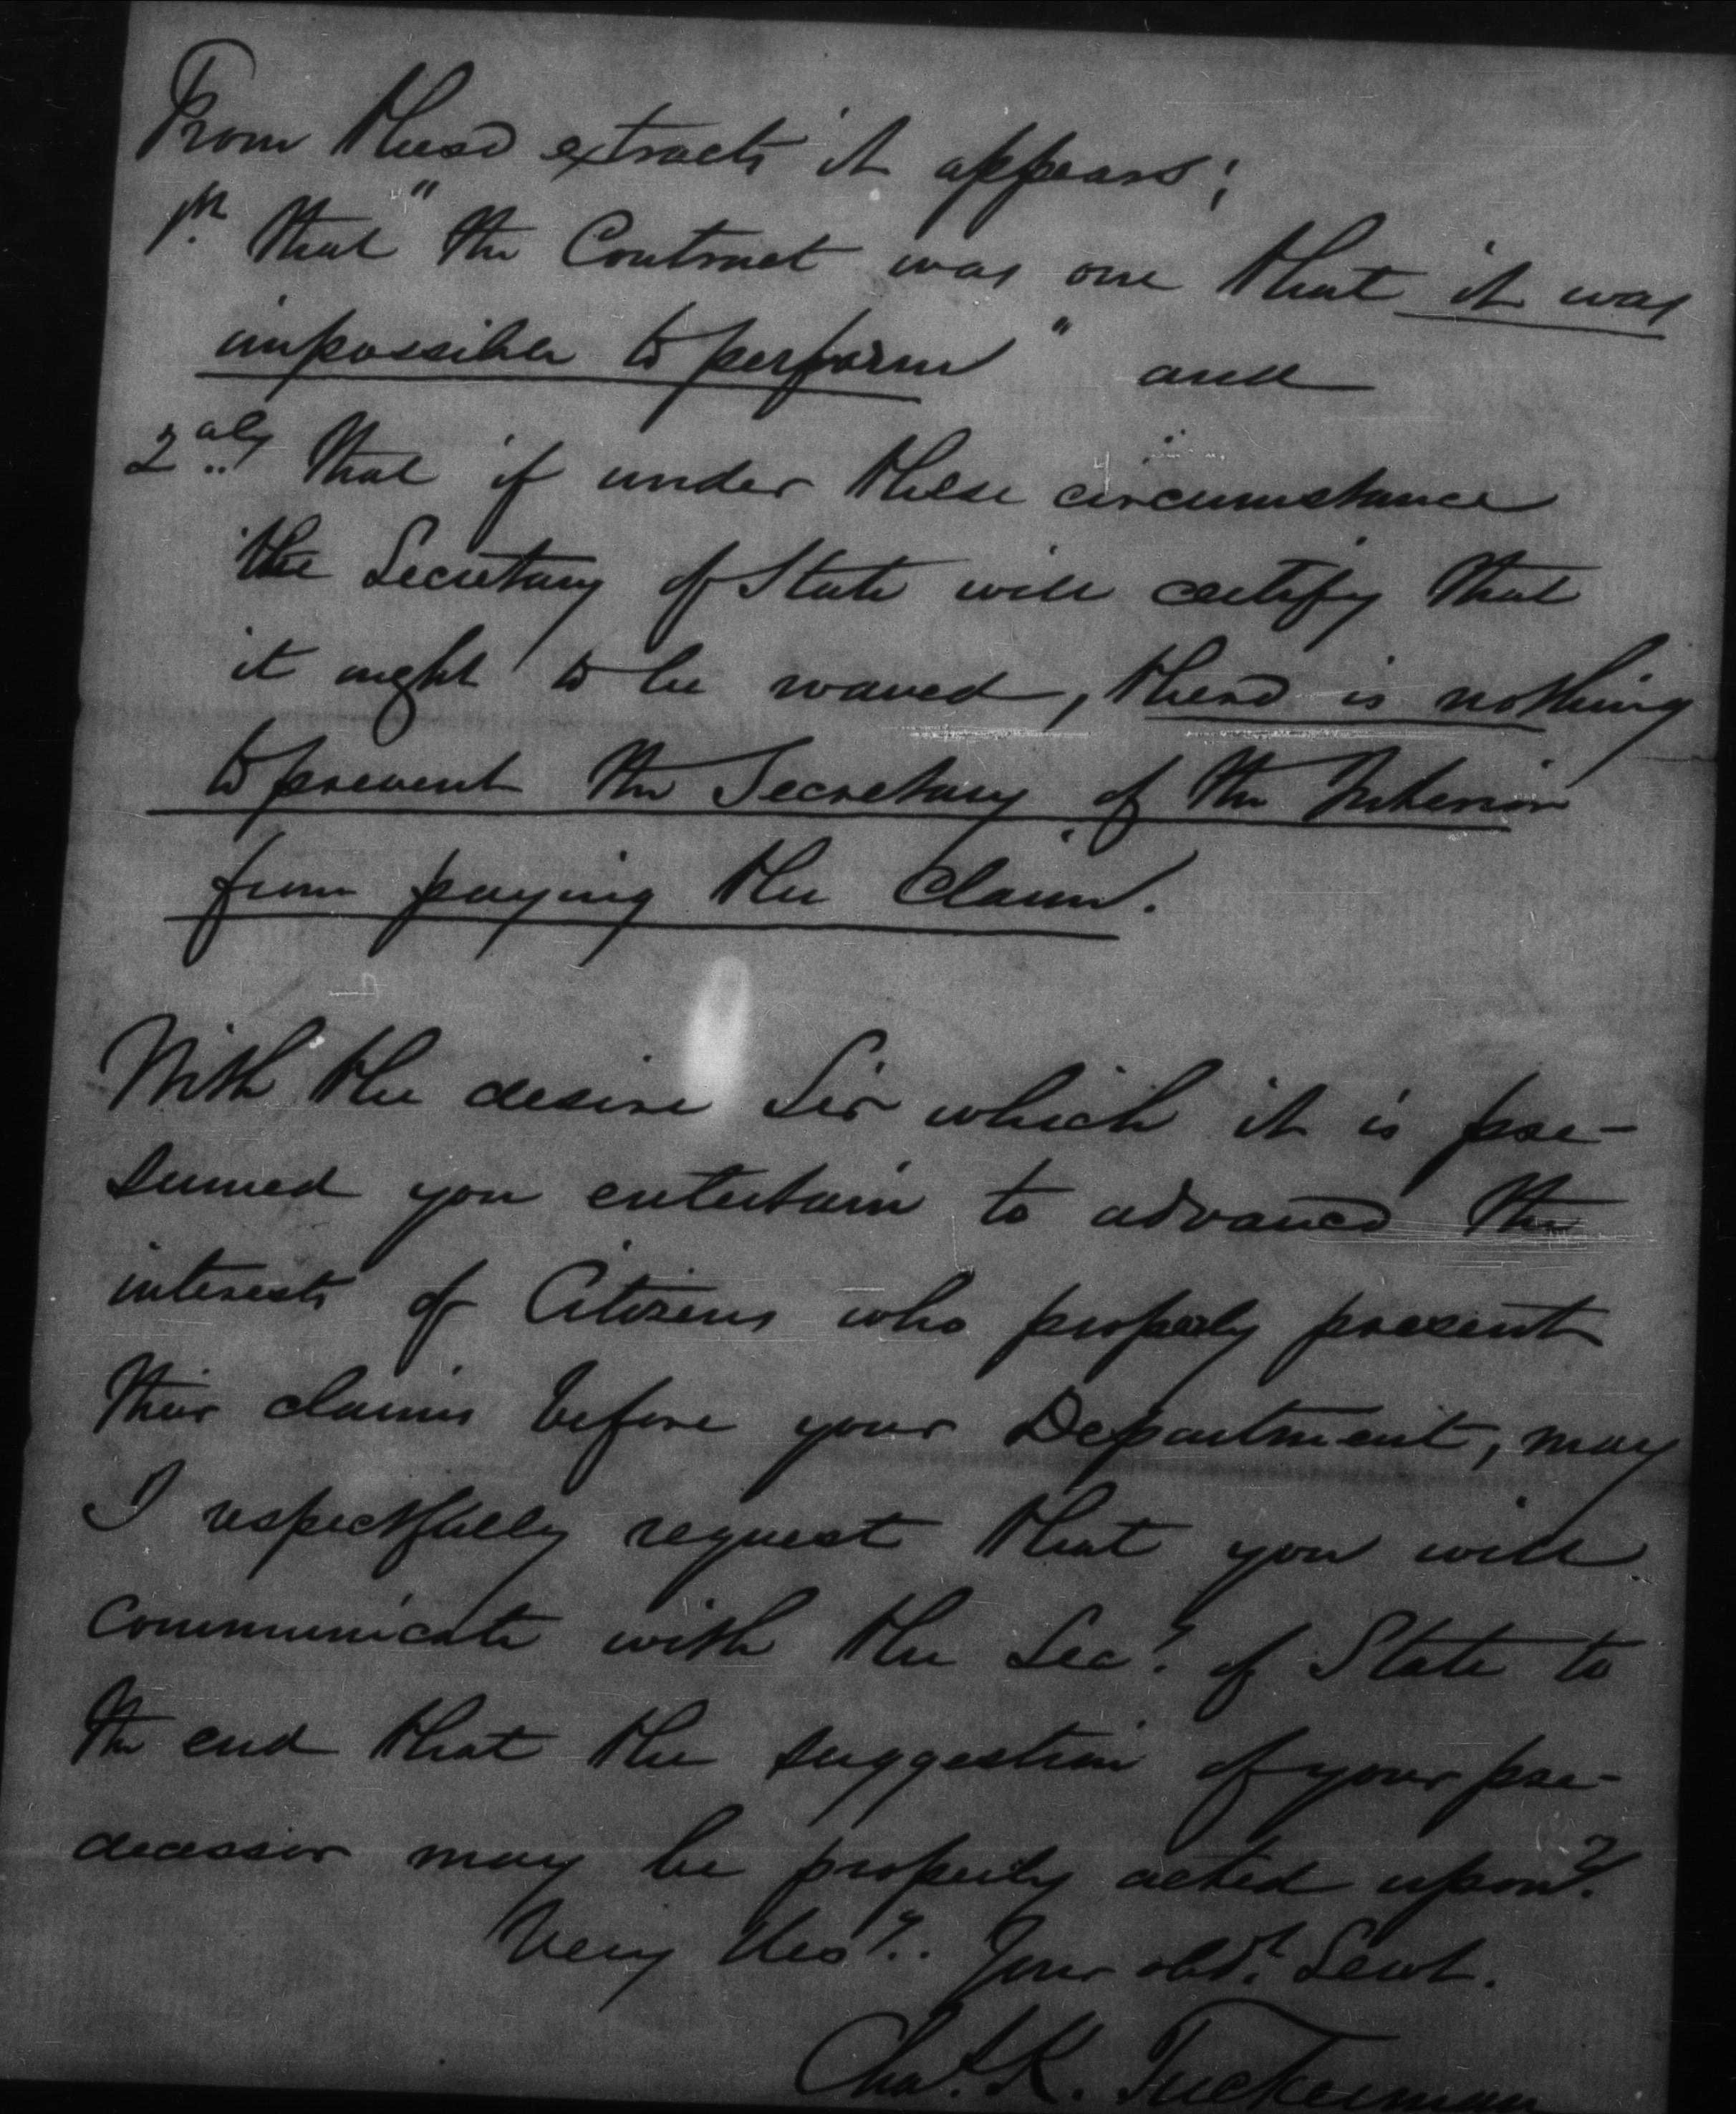 From these extracts it appears;
1st. that "the Contract was one that it was
impossible to perform" and
2dly that if under these circumstance
the Secretary of State will certify that
it ought to be waved, there is nothing
to prevent the Secretary of the Interior
from paying the Claim.
With the desire Sir which it is pre-
sumed you entertain to advance the
interests of Citizens who properly present
their claims before your Department, may
I respectfully request that you will
communicate with the Secy. of State to
the end that the suggestion of your pre-
decessor may be properly acted upon?
Very Resy.. Your obdt. Servt.
Chas. K. Tuckerman